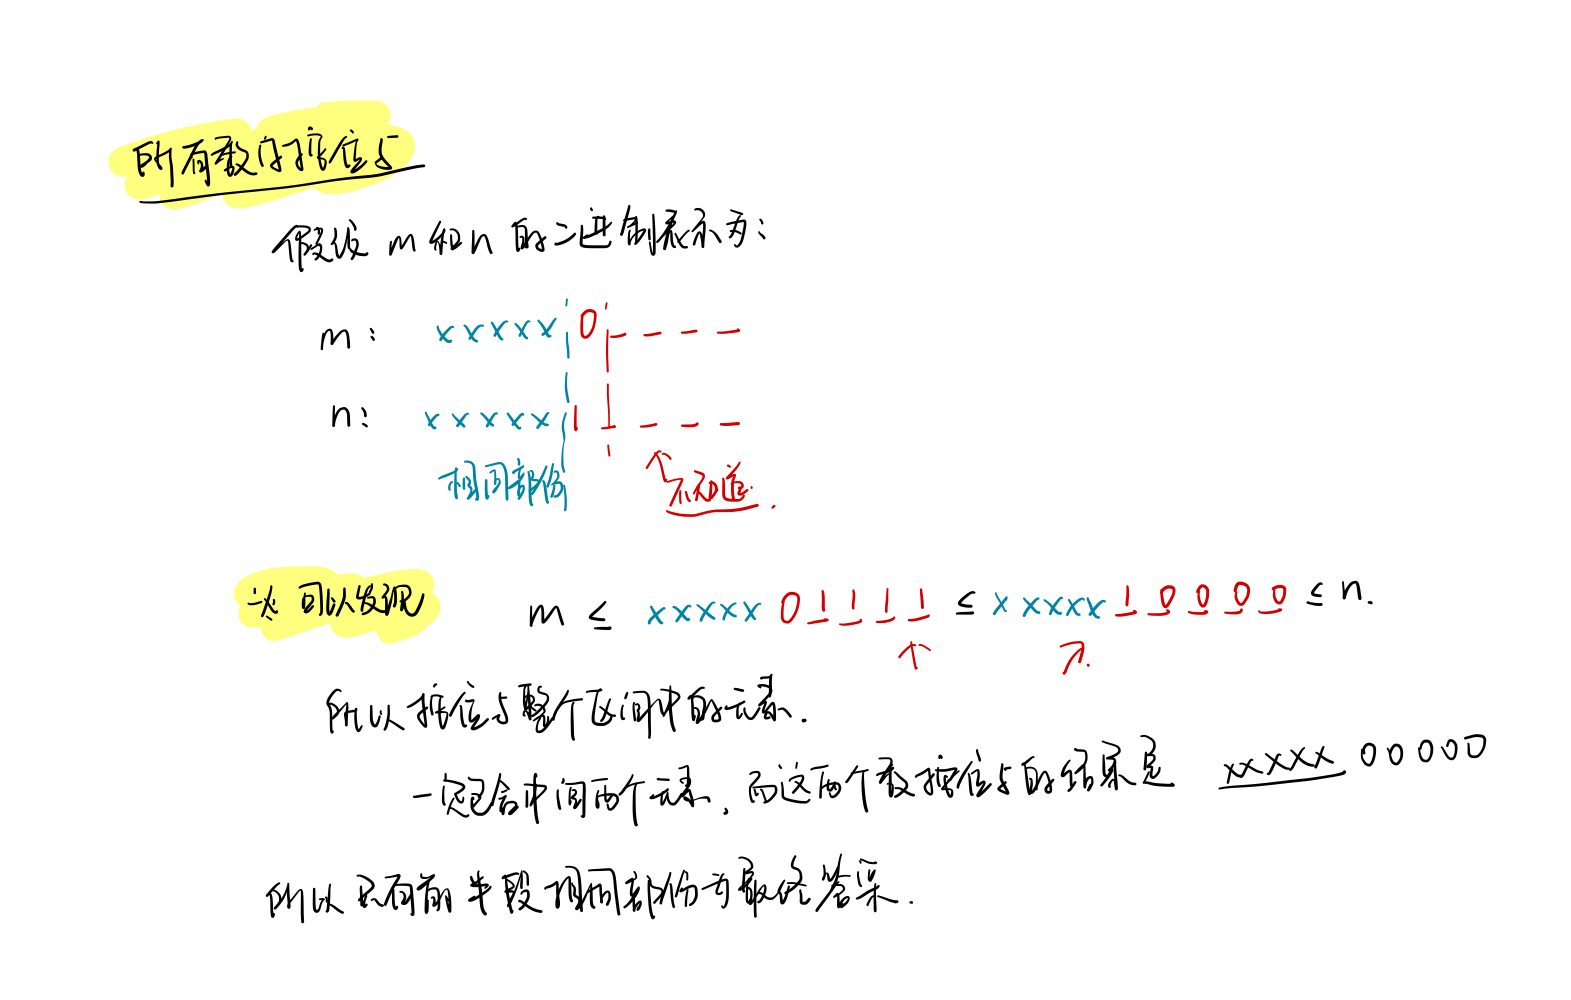 所有数的按位与
假设 m 和 n 的二进制表示为：
m： xxxxx 0 _ _ _ _
n： xxxxx 1 _ _ _ _
相同部份 ↑不知道.
※ 可以发现 m ≤ xxxxx 0 1 1 1 1 ≤ xxxxx 1 0 0 0 0 ≤ n.
所以按位与整个区间中的元素.
一定包含中间两个元素，而这两个数按位与的结果是 xxxxx 00000
所以只有前半段相同部份为最终答案.